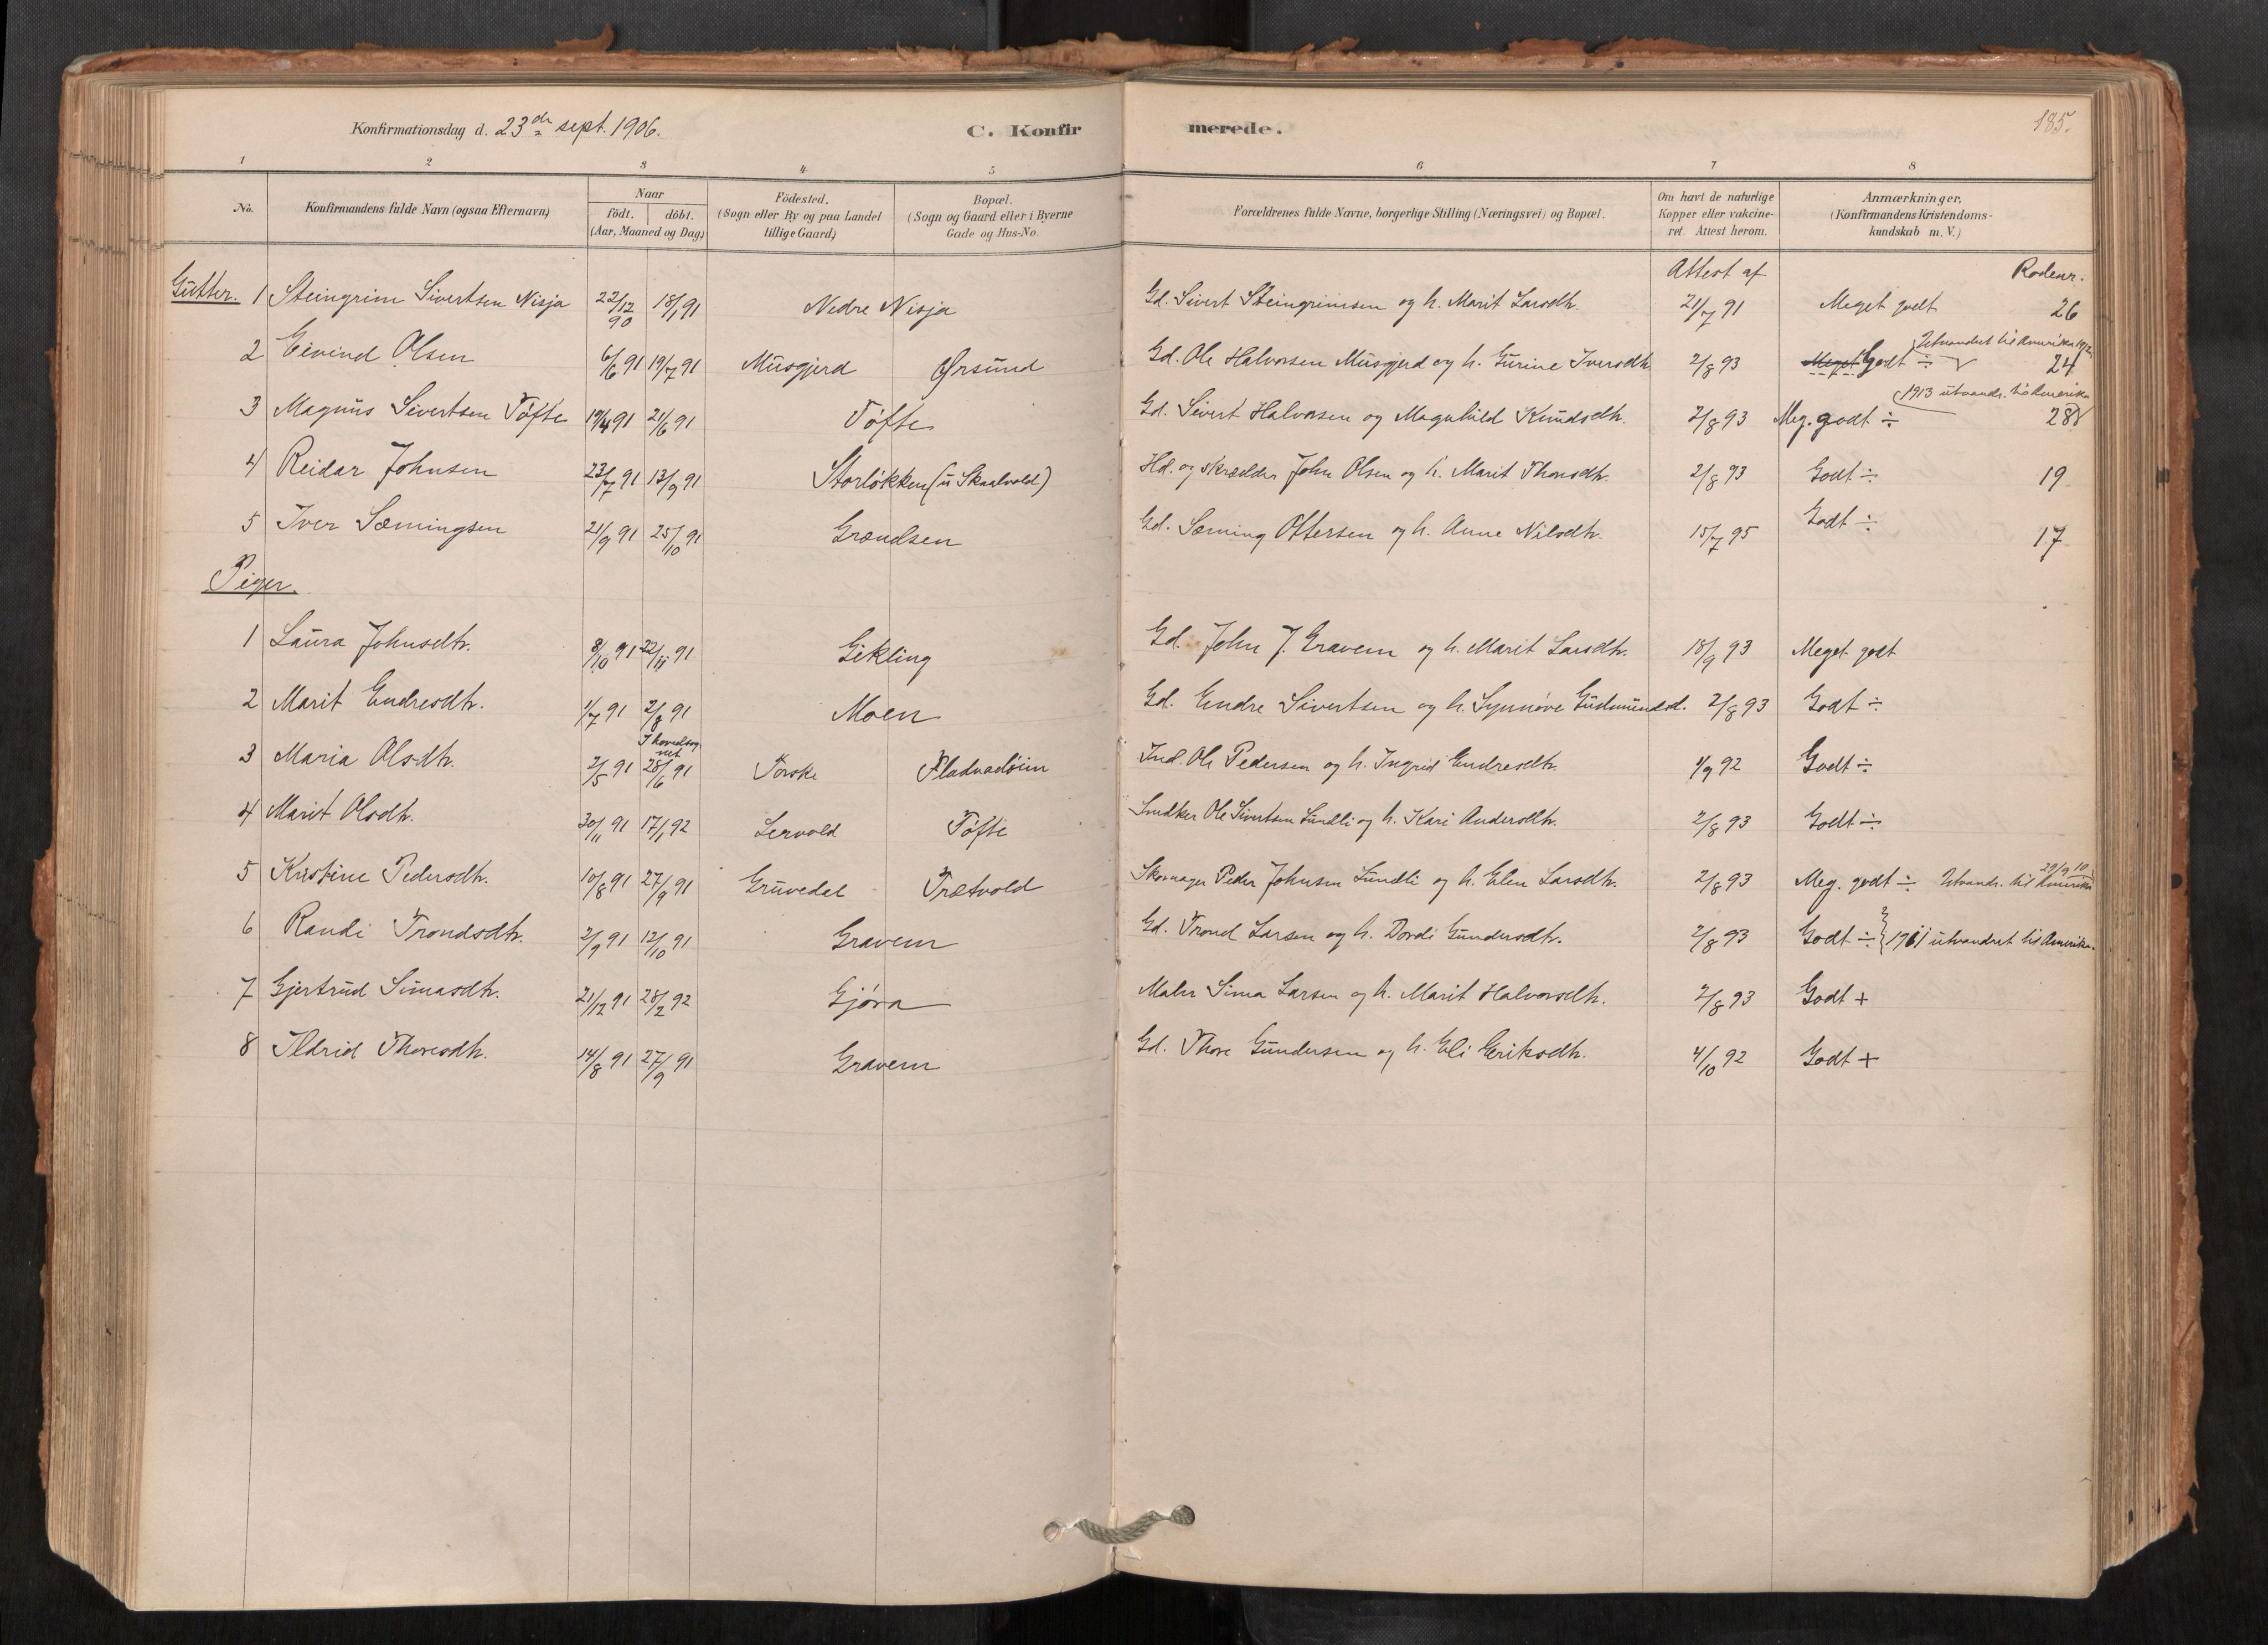 Konfirmationsdag d. 23de sept. 1906. C. Konfirmerede. 185.
1 2 3 4 5 6 7 8
No. Konfirmandens fulde Navn (ogsaa Efternavn) Naar født. døbt. (Aar, Maaned og Dag) Födested. (Sogn eller By og paa Landet tillige Gaard) Bopæl. (Sogn og Gaard eller i Byerne Gade og Hus-No. Forældrenes fulde Navne, borgerlige Stilling (Næringsvei) og Bopæl. Om havt de naturlige Kopper eller vakcineret. Attest herom. Anmærkninger. (Konfirmandens Kristendomskundskab m. V.)
Attest af Rodenr.
Gutter. 1 Steingrim Sivertsen Nisja 22/12 90 18/1 91 Nedre Nisja Gd. Sivert Steingrimsen og h. Marit Larsdtr. 21/7 91 Meget godt 26
Utvandret til Amerika 1912
2 Eivind Olsen 6/6 91 19/7 91 Musgjerd Ørsund Gd. Ole Halvorsen Musgjerd og h. Gurine Iversdtr. 2/8 93 Meget godt ÷ 24
1913 utvandr. til Amerika
3 Magnus Sivertsen Tøfte 19/4 91 21/6 91 Tøfte Gd. Sivert Halvorsen og Magnhild Knudsdtr. 2/8 93 Meg. godt ÷ 28
4 Reidar Johnsen 23/7 91 13/9 91 Storløkken (u Skaalvold) Hd. og skrædder John Olsen og h. Marit Thorsdtr. 2/8 93 Godt ÷ 19
5 Iver Sæmingsen 21/9 91 25/10 91 Grændsen Gd. Sæming Ottersen og h. Anne Nilsdtr. 15/7 95 Godt ÷ 17
Piger.
1 Laura Johnsdtr. 8/10 91 22/11 91 Gikling Gd. John J. Gravem og h. Marit Larsdtr. 18/9 93 Meget godt
2 Marit Endresdtr. 1/7 91 2/8 91 Moen Gd. Endre Sivertsen og h. Synnøve Gudmundsd. 2/8 93 Godt ÷
I hovedsognet
3 Maria Olsdtr. 2/5 91 28/6 91 Torske Fladvadøien Ind. Ole Pedersen og h. Ingrid Endresdtr. 1/9 92 Godt ÷
4 Marit Olsdtr. 30/11 91 17/1 92 Lervold Tøfte Snedker Ole Sivertsen Lundli og h. Kari Andersdtr. 2/8 93 Godt ÷
5 Kristine Pedersdtr. 10/8 91 27/9 91 Gruvedal Trætvold Skomager Peder Johnsen Lundli og h. Elen Larsdtr. 2/8 93 Meg. godt ÷ Utvandr. til Amerika 29/9 10
6 Randi Trondsdtr. 2/9 91 12/10 91 Gravem Gd. Trond Larsen og h. Dordi Gundersdtr. 2/8 93 Godt ÷ 1911 utvandret til Amerika.
7 Gjertrud Simasdtr. 21/12 91 28/2 92 Gjøra Maler Sima Larsen og h. Marit Halvorsdtr. 2/8 93 Godt +
8 Ildrid Thoresdtr. 14/8 91 27/9 91 Gravem Gd. Thore Gundersen og h. Eli Eriksdtr. 4/10 92 Godt +